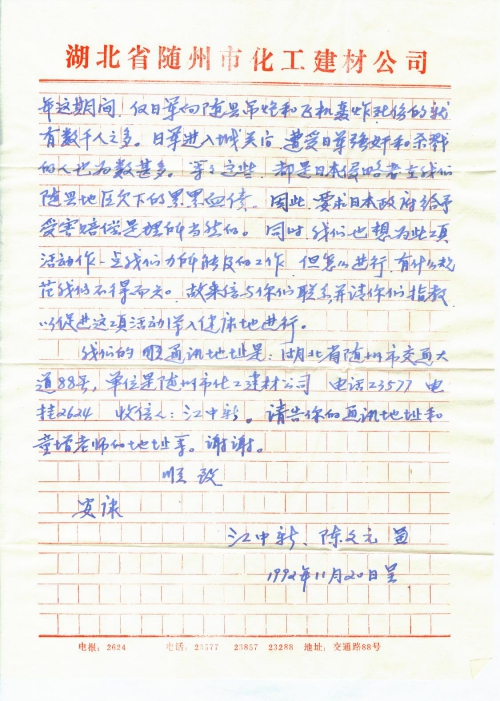 湖北省随州市化工建材公司
年这期间，仅日军向随县吊炮和飞机轰炸死伤的就
有数千人之多。日军进入城关后，遭受日军强奸和杀戮
的人也为数甚多。等等这些，都是日本侵略者在我们
随县地区欠下的累累血债。因此，要求日本政府给予
受害赔偿是理所当然的。同时，我们也想为此项
活动作一点我们力所能及的工作，但怎么进行，有什么规
范我们不得而知。故来信与你们联系，并请你们指教，
以促进这项活动深入健康地进行。
我们的通讯地址是：湖北省随州市交通大
道88号，单位是随州市化工建材公司 电话23577 电
挂2624 收信人：江中新。请告你的通讯地址和
童增老师的地址等。谢谢。
顺致
安康
江中新、陈文元
1992年11月20日呈
电报：2624 电话：23577 23857 23288 地址：交通路88号